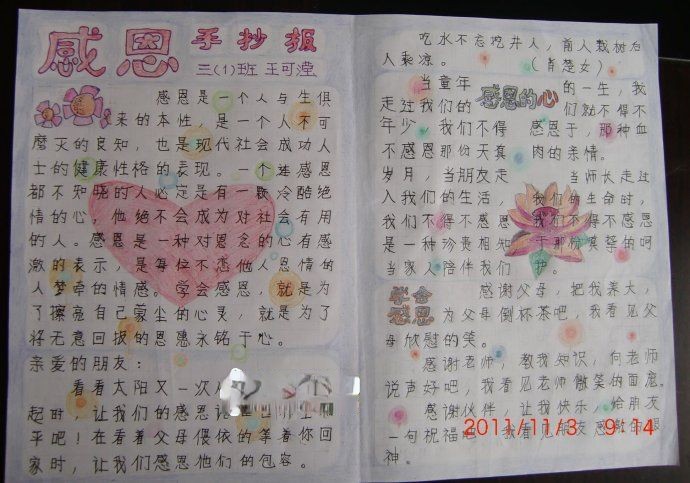 感恩 手抄报
三(1)班 王可滢
感恩是一个人与生俱
来的本性，是一个人不可
磨灭的良知，也是现代社会成功人
士的健康性格的表现。一个连感恩
都不知晓的人必定是有一颗冷酷绝
情的心，他绝不会成为对社会有用
的人。感恩是一种对恩念的心有感
激的表示，是每位不忘他人恩情的
人萦牵的情感。学会感恩，就是为
了擦亮自己蒙尘的心灵，就是为了
将无意回报的恩惠永铭于心。
亲爱的朋友：
看着太阳又一次
起时，让我们的感恩
平吧！在看着父母偎依的等着你回
家时，让我们感恩他们的包容。
吃水不忘挖井人，前人栽树后
人乘凉。（肖楚女）
感恩的心
当童年
走过我们的
年少，我们不得
不感恩那份天真
岁月，当朋友走
入我们的生活，
我们不得不感恩
是一种珍贵相知
当家人陪伴我们
的一生，我
们就不得不
感恩于，那种血
肉的亲情。
当师长走过
我们的生命时，
我们不得不感恩
于那份真挚的呵
护。
学会
感恩
感谢父母，把我养大，
为父母倒杯茶吧，我看见父
母欣慰的笑。
感谢老师，教我知识，向老师
说声好吧，我看见老师微笑的面庞。
感谢伙伴，让我快乐，给朋友
一句祝福吧，我看见朋友感激的眼
神。
2011/11/3 9:14